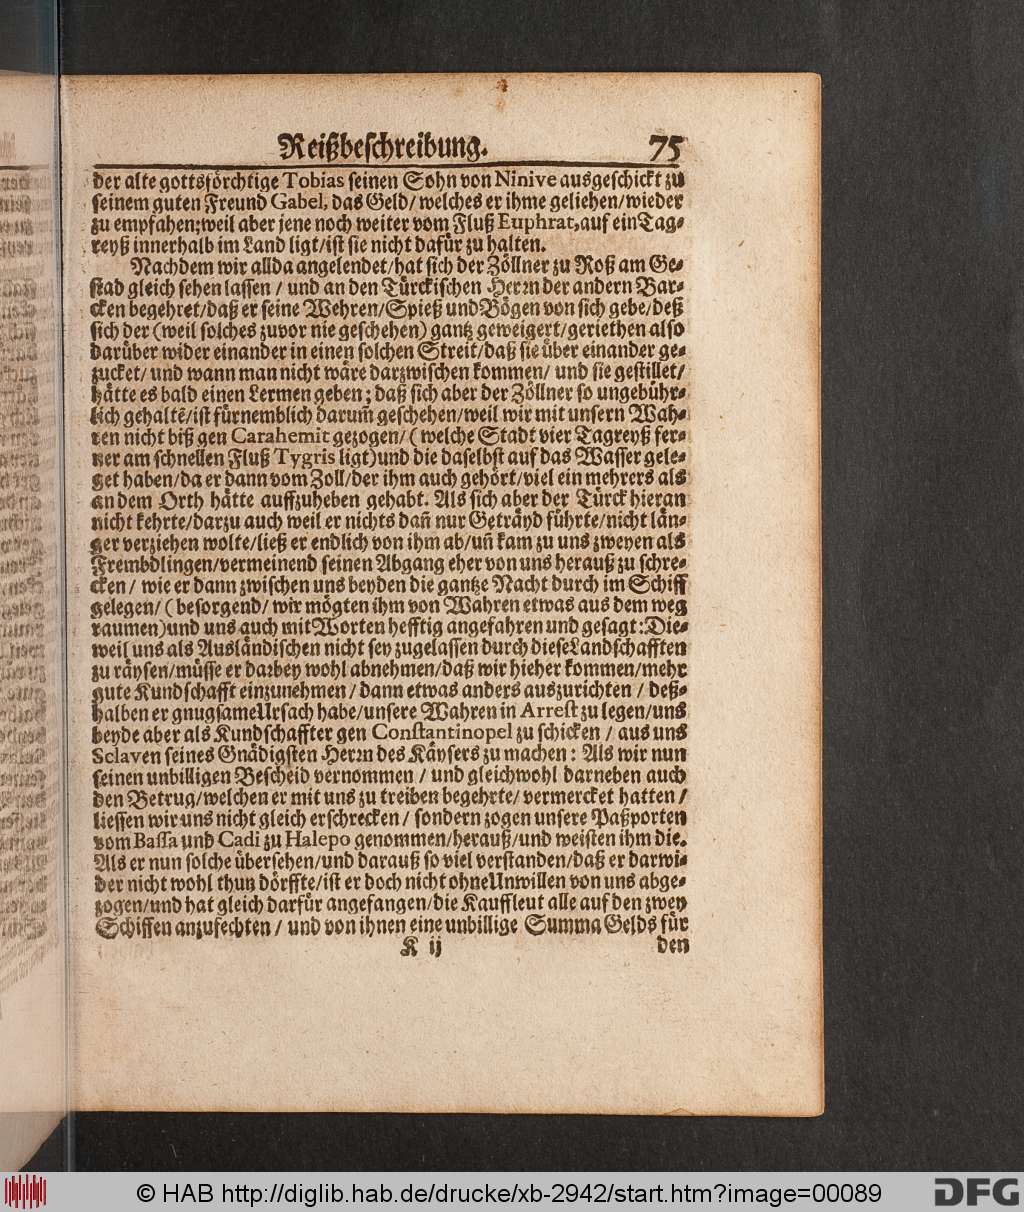 Reißbeschreibung. 75
der alte gottsförchtige Tobias seinen Sohn von Ninive ausgeschickt zu
seinem guten Freund Gabel, das Geld/ welches er ihme geliehen/ wieder
zu empfahen; weil aber jene noch weiter vom Fluß Euphrat, auf ein Tag-
reyß innerhalb im Land ligt/ ist sie nicht dafür zu halten.
Nachdem wir allda angelendet/ hat sich der Zöllner zu Roß am Ge-
stad gleich sehen lassen / und an den Türckischen Herrn der andern Bar-
cken begehret/ daß er seine Wehren/ Spieß und Bögen von sich gebe/ deß
sich der (weil solches zuvor nie geschehen) gantz geweigert/ geriethen also
darüber wider einander in einen solchen Streit/ daß sie über einander ge-
zucket/ und wann man nicht wäre darzwischen kommen/ und sie gestillet/
hätte es bald einen Lermen geben; daß sich aber der Zöllner so ungebühr-
lich gehaltē/ ist fürnemblich darum̃ geschehen/ weil wir mit unsern Wah-
ren nicht biß gen Carahemit gezogen/ ( welche Stadt vier Tagreyß fer-
ner am schnellen Fluß Tygris ligt) und die daselbst auf das Wasser gele-
get haben/ da er dann vom Zoll/ der ihm auch gehört/ viel ein mehrers als
an dem Orth hätte auffzuheben gehabt. Als sich aber der Türck hieran
nicht kehrte/ darzu auch weil er nichts dañ nur Geträyd führte/ nicht län-
ger verziehen wolte/ ließ er endlich von ihm ab/ uñ kam zu uns zweyen als
Frembdlingen/ vermeinend seinen Abgang eher von uns herauß zu schre-
cken / wie er dann zwischen uns beyden die gantze Nacht durch im Schiff
gelegen/ ( besorgend/ wir mögten ihm von Wahren etwas aus dem weg
raumen) und uns auch mit Worten hefftig angefahren und gesagt: Die-
weil uns als Ausländischen nicht sey zugelassen durch diese Landschafften
zu räysen/ müsse er darbey wohl abnehmen/ daß wir hieher kommen/ mehr
gute Kundschafft einzunehmen / dann etwas anders auszurichten / deß-
halben er gnugsame Ursach habe/ unsere Wahren in Arrest zu legen/ uns
beyde aber als Kundschaffter gen Constantinopel zu schicken / aus uns
Sclaven seines Gnädigsten Herrn des Käysers zu machen: Als wir nun
seinen unbilligen Bescheid vernommen / und gleichwohl darneben auch
den Betrug/ welchen er mit uns zu treiben begehrte/ vermercket hatten /
liessen wir uns nicht gleich erschrecken / sondern zogen unsere Paßporten
vom Bassa und Cadi zu Halepo genommen/ herauß/ und weisten ihm die.
Als er nun solche übersehen/ und darauß so viel verstanden/ daß er darwi-
der nicht wohl thun dörffte/ ist er doch nicht ohne Unwillen von uns abge-
zogen/ und hat gleich darfür angefangen/ die Kauffleut alle auf den zwey
Schiffen anzufechten / und von ihnen eine unbillige Summa Gelds für
K ij den
© HAB http://diglib.hab.de/drucke/xb-2942/start.htm?image=00089 DFG